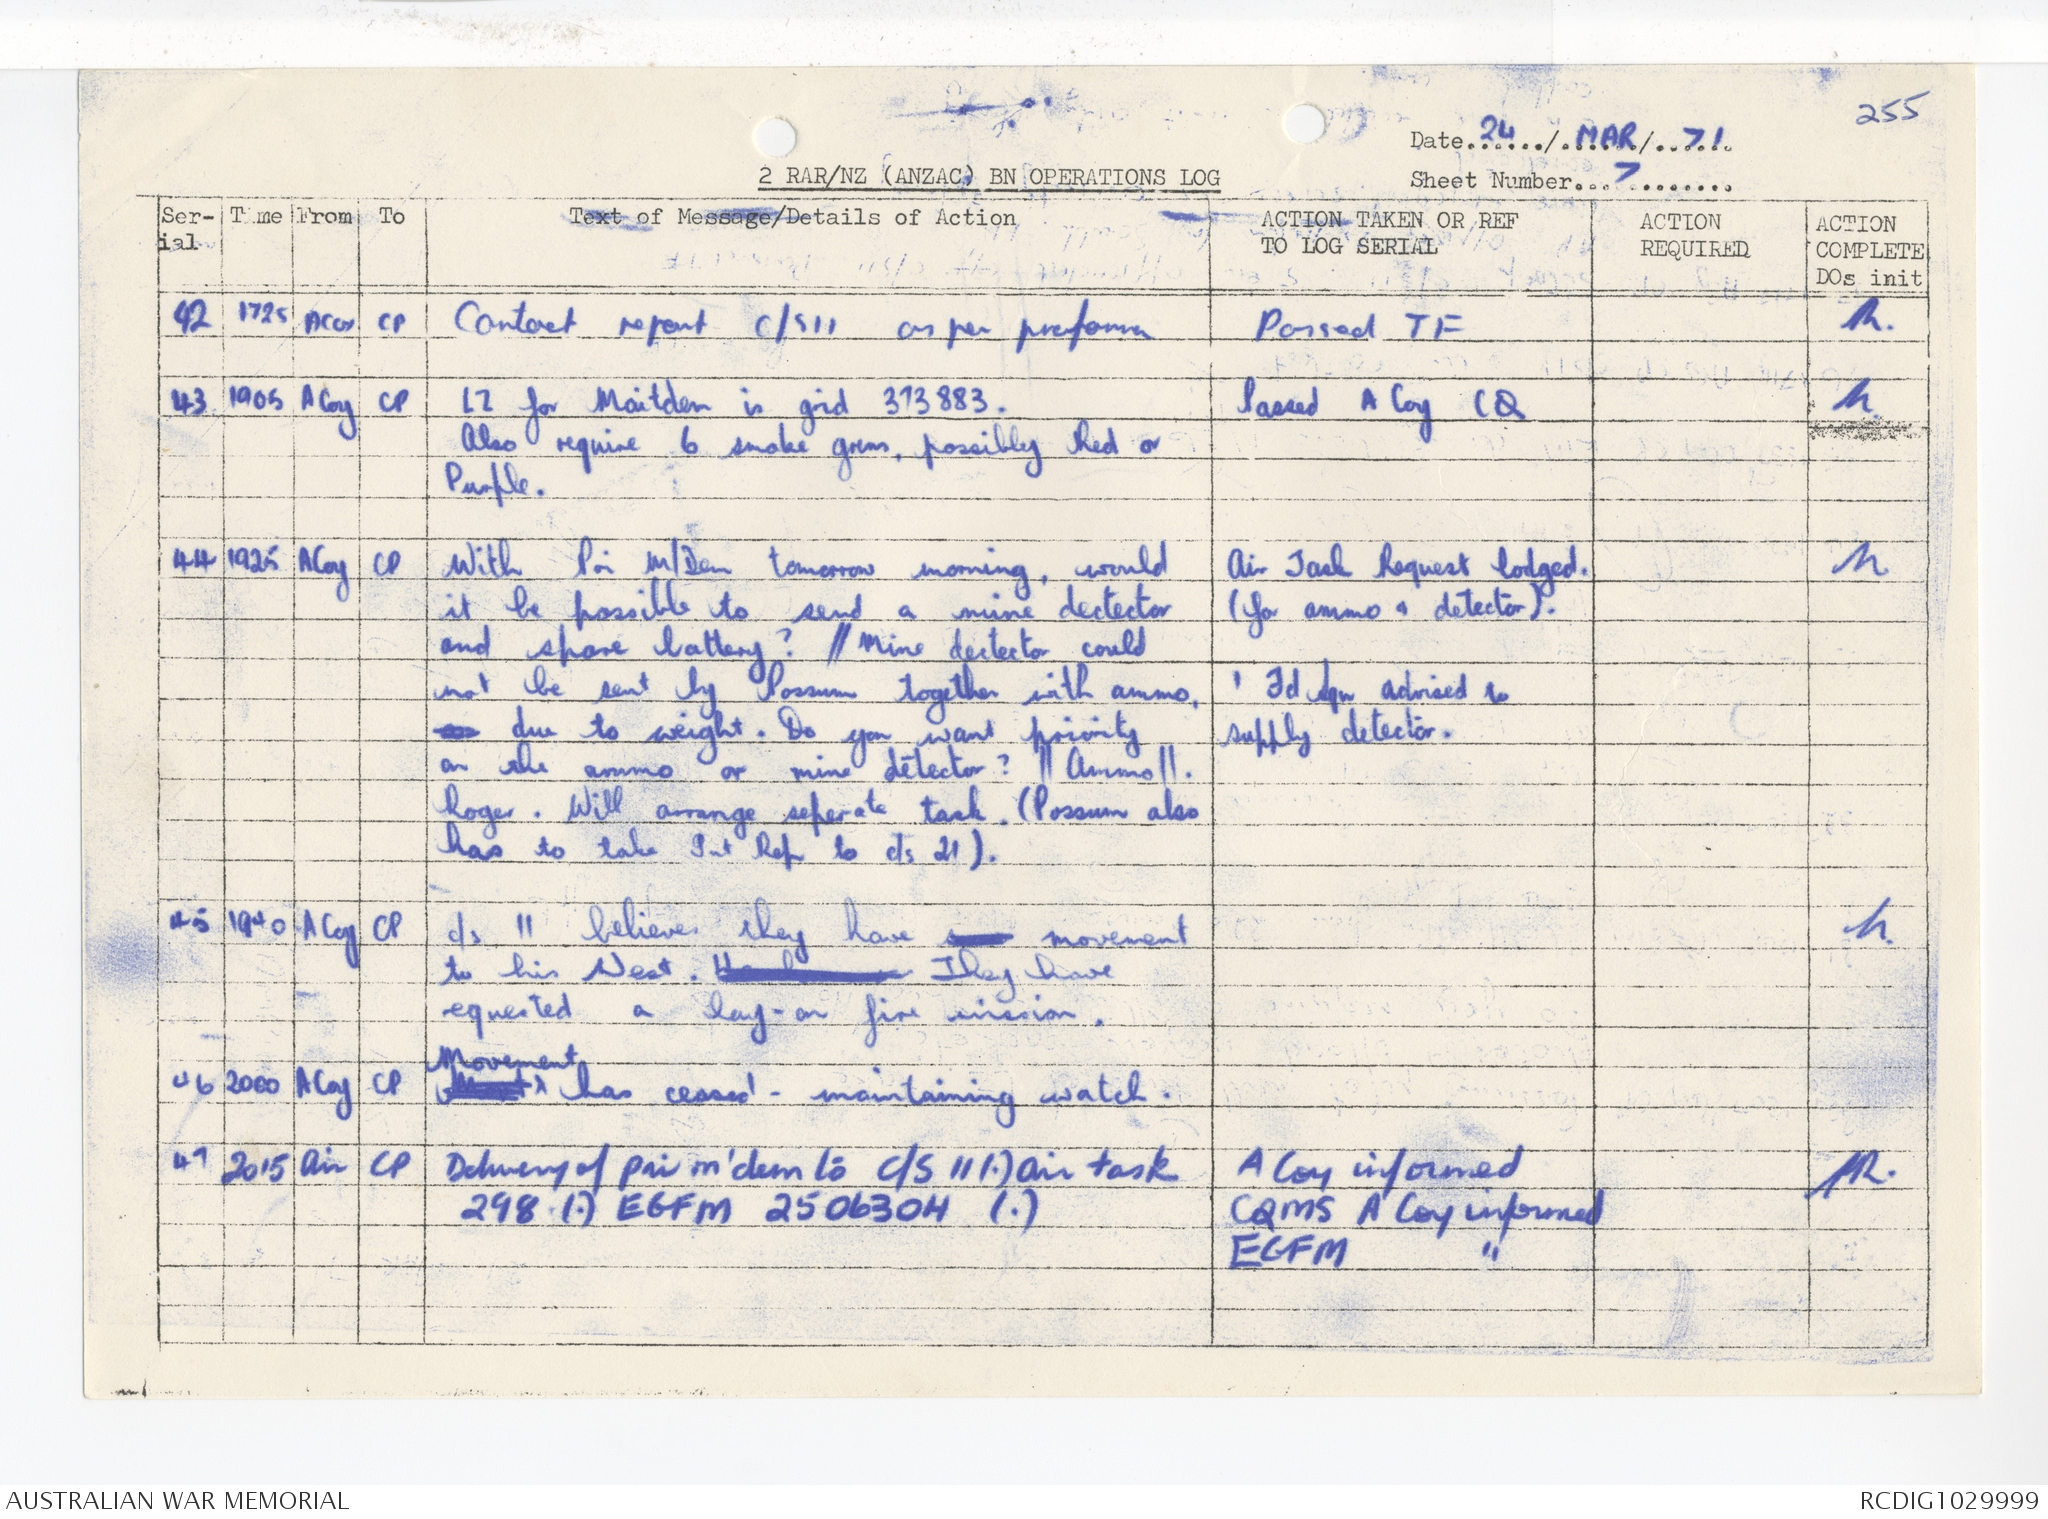 255
Date 24 / MAR / 71
2 RAR/NZ (ANZAC) BN OPERATIONS LOG
Sheet Number 7
Ser-ial Time From To Text of Message/Details of Action ACTION TAKEN OR REF TO LOG SERIAL ACTION REQUIRED ACTION COMPLETE DOs init
42 1725 A Coy CP Contact report C/S 11 as per proforma Passed TF
43 1905 A Coy CP LZ for Maitdem is grid 373883. Passed A Coy CQ
Also require 6 smoke grens, possibly Red or
Purple.
44 1925 A Coy CP With Pri M/Dem tomorrow morning, would Air Task Request lodged.
it be possible to send a mine dectector (for ammo & detector).
and spare battery? // Mine dectector could
not be sent by Possum together with ammo, 1 Fd Sqn advised to
due to weight. Do you want priority supply detector.
on the ammo or mine detector? // Ammo //.
Roger. Will arrange seperate task. (Possum also
has to take Int Rep to c/s 21).
45 1940 A Coy CP c/s 11 believes they have movement
to his West. They have
requested a lay-on fire mission.
Movement
46 2000 A Coy CP has ceased - maintaining watch.
47 2015 Air CP Delivery of pri m'dem to C/S 11 (.) air task A Coy informed
298 (.) EGFM 250630H (.) CQMS A Coy informed
EGFM "
AUSTRALIAN WAR MEMORIAL RCDIG1029999